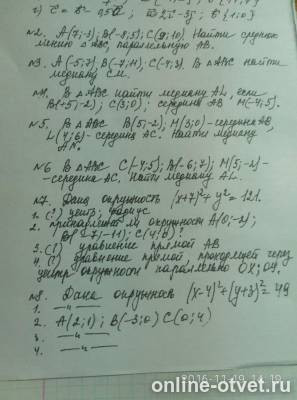 №2. A(7;-3); B(-8;5); C(9;10) Найти среднюю
линию △ABC, параллельную AB.
№3. A(-5;7); B(-7;11); C(-4;3) В △ABC найти
медиану CM.
№4. В △ABC найти медиану AL, если
B(+5;-2); C(3;0); середина AB M(-4;5).
№5. В △ABC B(5;-2); M(3;0)-середина AB,
L(4;6)-середина AC. Найти медиану
AN.
№6 В △ABC C(-4;5); B(-6;7); M(5;-2)-
-середина AC. Найти медиану AL.
№7. Дана окружность (x+7)²+y²=121.
1. (?) центр; радиус
2. принадлежит ли окружности A(0;-2);
B(-7;-11); C(4;0)?
3. (?) уравнение прямой AB
4. (?) уравнение прямой, проходящей через
центр окружности параллельно OX; OY.
№8. Дана окружность (x-4)²+(y+3)²=49
1. —"—
2. A(2;1); B(-3;0) C(0;4)
3. —"—
4. —"—
2016-11-19 14:19
online-otvet.ru